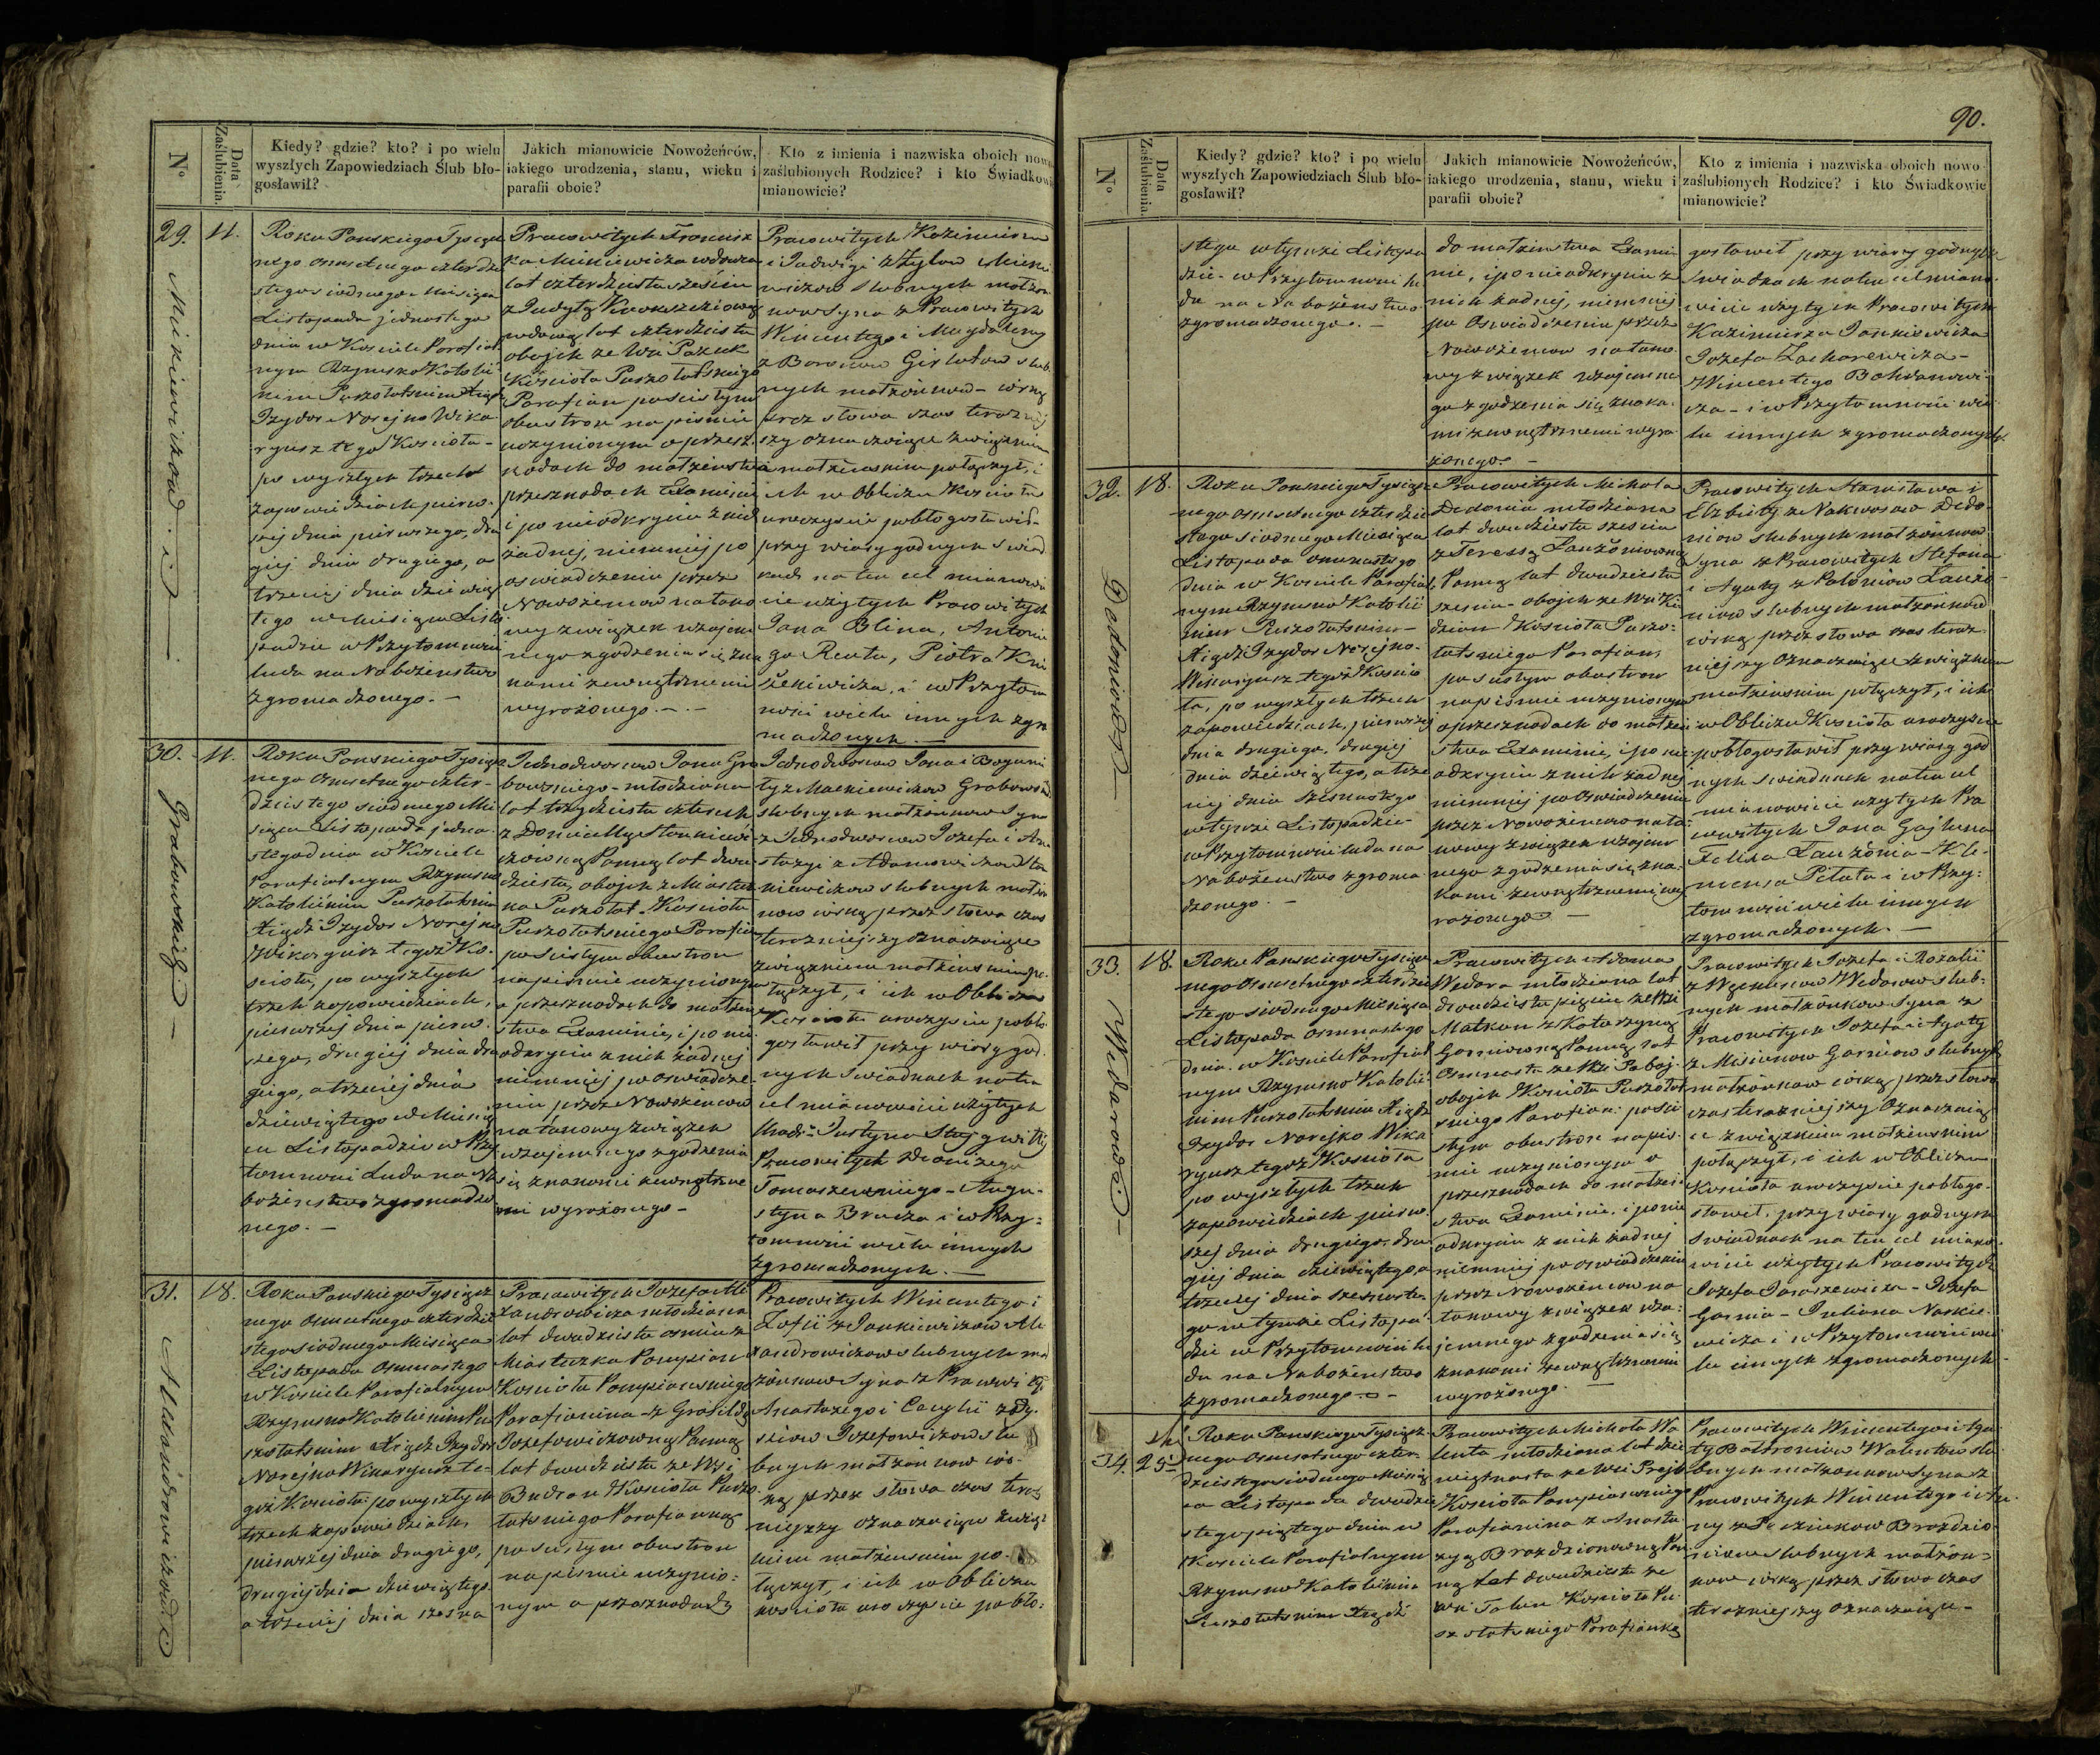 Nº
Data Zaślubienia.
Kiedy? gdzie? kto? i po wielu
wyszłych Zapowiedziach Ślub bło-
gosławił?
Jakich mianowicie Nowożeńców,
iakiego urodzenia, stanu, wieku i
parafii oboie?
Kto z imienia i nazwiska oboich nowo
zaślubionych Rodzice? i kto Świadkowie
mianowicie?
29.
11.
Mickiewiczow
Roku Panskiego Tysiącz
nego osmsetnego czterdzie
stego siodmego Miesiąca
Listopada jednastego
dnia w Kosciele Parafial
nym Rzymsko Katolic
kim Puszołatskim Xiądz
Izydor Norejko Wika
ryusz tegoż Kościoła -
po wyszłych trzech
zapowiedziach pierw-
szej dnia pierwszego, dru
giej dnia drugiego, a
trzeciej dnia dziewią
tego w Miesiącu Listo
padzie w Przytomności
ludu na Nabożenstwo
zgromadzonego. -
Pracowitych Francisz
ka Mickiewicza wdowca
lat czterdziestu sześciu
z Judytą
wdową lat czterdziestu
obojch ze Wsi Pazuk
Kościoła Puszołatskiego
Parafian po scisłym
obustron na piśmie
uczynionym o przesz-
kodach do małżeństwa
przeszkodach Examinie
i po nieodkryciu z nich
żadnej, niemniej po
oświadczeniu przez
Nowożencow na tako
wy związek wzajem
nego zgodzenia się zna
kami zewnętrznemi
wyrażonego. -
Pracowitych Kazimierza
i Jadwigi z Żyłow Mickie
wiczow slubnych małżon
kow Syna z Pracowitych
Wincentego i Magdaleny
z Baronow Girlutow slub
nych małżonkow - corką
przez słowa czas teraźniej
szy oznaczaiące związkiem
małżenskim połączył, i
ich w Obliczu Kościoła
uroczyscie pobłogosławił -
przy wiary godnych Swiad
kach na ten cel mianowi
cie użytych Pracowitych
Jana Blina, Antonie
go Reuta, Piotra Kni
sżekiewicza, i w Przytom
ności wielu innych zgro
madzonych. -
30.
11.
Grabowskich
Roku Panskiego Tysiącz
nego Osmsetnego czter-
dziestego siodmego Mie
siąca Listopada jedna
stego dnia w Kosciele
Parafialnym Rzymsko
Katolickim Puszołatskim
Xiądz Izydor Norejko
Wikaryusz tegoż Ko-
scioła, po wyszłych
trzech zapowiedziach,
pierwszej dnia pierw-
szego, drugiej dnia dru
giego, a trzeciej dnia
dziewiątego w Miesią
cu Listopadzie w Przy
tomności Ludu na Na
bożenstwo zgromadzo
nego. -
Jednodworcow Jana Gra
bowskiego - młodziana
lat trzydziestu czterech
z Domicellą Stankiewi
czowną Panną lat dwu
dziestu, obojch z Miastecz
ka Puszołat Kościoła
Puszołatskiego Parafian
po scisłym obustron
na piśmie uczynionym
o przeszkodach do małżen
stwa Examinie, i po nie
odkryciu z nich żadnej
niemniej po oswiadcze
niu przez Nowożencow
na takowy związek
wzajemnego zgodzenia
się znakami zewnętrzne
mi wyrażonego -
Jednodworcow Jana i Bogumi
ły z Mackiewiczow Grabowskich
slubnych małżonkow Syna
z Jednodworcow Jozefa i Ana
stazyi z Adamowiczow Stan
kiewiczow slubnych małżon
kow corką przez słowa czas
teraźniejszy oznaczaiące
związkiem małżenskim po-
łączył, i ich w Obliczu
Kościoła uroczyscie pobło
gosławił przy wiary god-
nych Swiadkach na ten
cel mianowicie użytych
Justyna
Pracowitych Dionizego
Tomaszewskiego - Augu-
styna Brucza i w Przy-
tomności wielu innych
zgromadzonych. -
31.
18.
Alexandrowiczow
Roku Panskiego Tysiącz
nego Osmsetnego czterdzie
stego siodmego Miesiąca
Listopada Osmnastego
w Kosciele Parafialnym
Rzymsko Katolickim Pu
szołatskim Xiądz Izydor
Norejko Wikaryusz te-
goż Kościoła po wyszłych
trzech zapowiedziach,
pierwszej dnia drugiego,
drugiej dnia dziewiątego
a trzeciej dnia szesna
Pracowitych Jozefa Ale
xandrowicza młodziana
lat dwudziestu osmiu z
Miasteczka Pompian
Kościoła Pompianskiego
Parafianina - z Grasildą
Jozefowiczowną Panną
lat dwudziestu ze Wsi
Budran Kościoła Puszo-
łatskiego Parafianką
po scisłym obustron
na piśmie uczynio-
nym o przeszkodach
Pracowitych Wincentego i
Zofii z Jankiewiczow Ale
xandrowiczow slubnych mał
żonkow Syna z Pracowitych
Anastazego i Cecylii
Jozefowiczow slu
bnych małżonkow cor-
ką przez słowa czas teraz
niejszy oznaczaiące związ
kiem małżenskim po-
łączył, i ich w Obliczu
Kościoła uroczyscie pobło-
90.
Nº
Data Zaślubienia.
Kiedy? gdzie? kto? i po wielu
wyszłych Zapowiedziach Ślub bło-
gosławił?
Jakich mianowicie Nowożeńców,
iakiego urodzenia, stanu, wieku i
parafii oboie?
Kto z imienia i nazwiska oboich nowo
zaślubionych Rodzice? i kto Świadkowie
mianowicie?
stego w tymże Listopa
dzie - w Przytomności lu
du na Nabożenstwo
zgromadzonego. -
do małżenstwa Exami
nie, i po nieodkryciu z
nich żadnej, niemniej
po Oswiadczeniu przez
Nowożencow na tako
wy związek wzajemne
go zgodzenia się znaka-
mi zewnętrznemi wyra-
żonego. -
gosławił przy wiary godnych
Swiadkach na ten cel miano-
wicie użytych Pracowitych
Kazimierza Jankiewicza
Jozefa Zacharewicza -
Wincentego Bohdanowi-
cza - i w Przytomności wie
lu innych zgromadzonych.
32.
18.
Dedoniow
Roku Panskiego Tysiącz
nego osmsetnego czterdzie
stego siodmego Miesiąca
Listopada osmnastego
dnia w Kosciele Parafial
nym Rzymsko Katolic
kim Puszołatskim -
Xiądz Izydor Norejko -
Wikaryusz tegoż Koscio
ła, po wyszłych trzech
zapowiedziach, pierwszej
dnia drugiego, drugiej
dnia dziewiątego, a trze
ciej dnia szesnastego
w tymże Listopadzie -
w Przytomności ludu na
Nabożenstwo zgroma
dzonego. -
Pracowitych Michała
Dedonia młodziana
lat dwudziestu sześciu
z Teressą Łaużoniowną
Panną lat dwudziestu
sześciu - obojch ze Wsi Ki
dzian Kościoła Puszo-
łatskiego Parafian,
po scisłym obustron
na piśmie uczynionym
o przeszkodach do małżen
stwa Examinie, i po nie
odkryciu z nich żadnej
niemniej po Oswiadczeniu
przez Nowożencow na ta
kowy związek wzajem
nego zgodzenia się zna-
kami zewnętrznemi wy
rażonego -
Pracowitych Stanisława i
Elzbiety z Nakwosow Dedo-
niow slubnych małżonkow
Syna z Pracowitych Stefana
i Agaty z Patoniow Łaużo-
niow slubnych małżonkow
corką przez słowa czas teraz-
niejszy Oznaczaiące związkiem
małżenskim połączył, i ich
w Obliczu Kościoła uroczyscie
pobłogosławił przy wiary god
nych Swiadkach na ten cel
mianowicie użytych Pra
cowitych Jana Gajluna
Felixa Łaużonia - Kle-
mensa Petata i w Przy-
tomności wielu innych
zgromadzonych. -
33.
18.
Wedarow
Roku Panskiego Tysiącz
nego Osmsetnego czterdzie
stego siodmego Miesiąca
Listopada osmnastego
dnia w Kosciele Parafial
nym Rzymsko Katolic
kim Puszołatskim Xiądz
Izydor Norejko Wika
ryusz tegoż Kościoła
po wyszłych trzech
zapowiedziach pierw
szej dnia drugiego, dru
giej dnia dziewiątego, a
trzeciej dnia szesnaste
go w tymże Listopa-
dzie w Przytomności lu
du na Nabożenstwo
zgromadzonego. -
Pracowitych Adama
Wedara młodziana lat
dwudziestu pięciu ze Wsi
Matkun z Katarzyną
Garniowną Panną lat
Osmnastu ze Wsi Paboj-
obojch Kościoła Puszołat
skiego Parafian: po sci
słym obustron na piś-
mie uczynionym o
przeszkodach do małżen-
stwa Examinie, i po nie
odkryciu z nich żadnej
niemniej po oswiadczeniu
przez Nowożencow na
takowy związek wza-
jemnego zgodzenia się
znakami zewnętrznemi
wyrażonego. -
Pracowitych Jozefa i Rozalii
z Wedarow slub-
nych małżonkow Syna z
Pracowitych Jozefa i Agaty
z Misiunow Garniow slubnych
małżonkow corką przez słowa
czas teraźniejszy Oznaczaią
ce związkiem małżenskim
połączył, i ich w Obliczu
Kościoła uroczyscie pobłogo-
sławił, przy wiary godnych
Swiadkach na ten cel miano-
wicie użytych Pracowitych
Jozefa Jaroszewicza - Jozefa
Garnia - Juliana Naskie-
wicza i w Przytomności wie
lu innych zgromadzonych -
34.
25.
Roku Panskiego Tysiącz
nego Osmsetnego czter-
dziestego siodmego Miesią
ca Listopada dwudzie
stego piątego dnia w
Kosciele Parafialnym
Rzymsko Katolickim
Puszołatskim Xiądz
Pracowitych Michała Wa
lenta młodziana lat dzie
więtnastu ze Wsi
Kościoła Pompianskiego
Parafianina z Anasta
zyą Brazdzioniowną Pan
ną lat dwudziestu ze
Wsi Talun Kościoła Pu
szołatskiego Parafianką
Pracowitych Wincentego i Aga
ty Baltroniow Walentow slu
bnych małżonkow Syna z
Pracowitych Wincentego i An-
ny z Brazdzio
niow slubnych małżon-
kow corką przez słowa czas
teraźniejszy oznaczaiące -